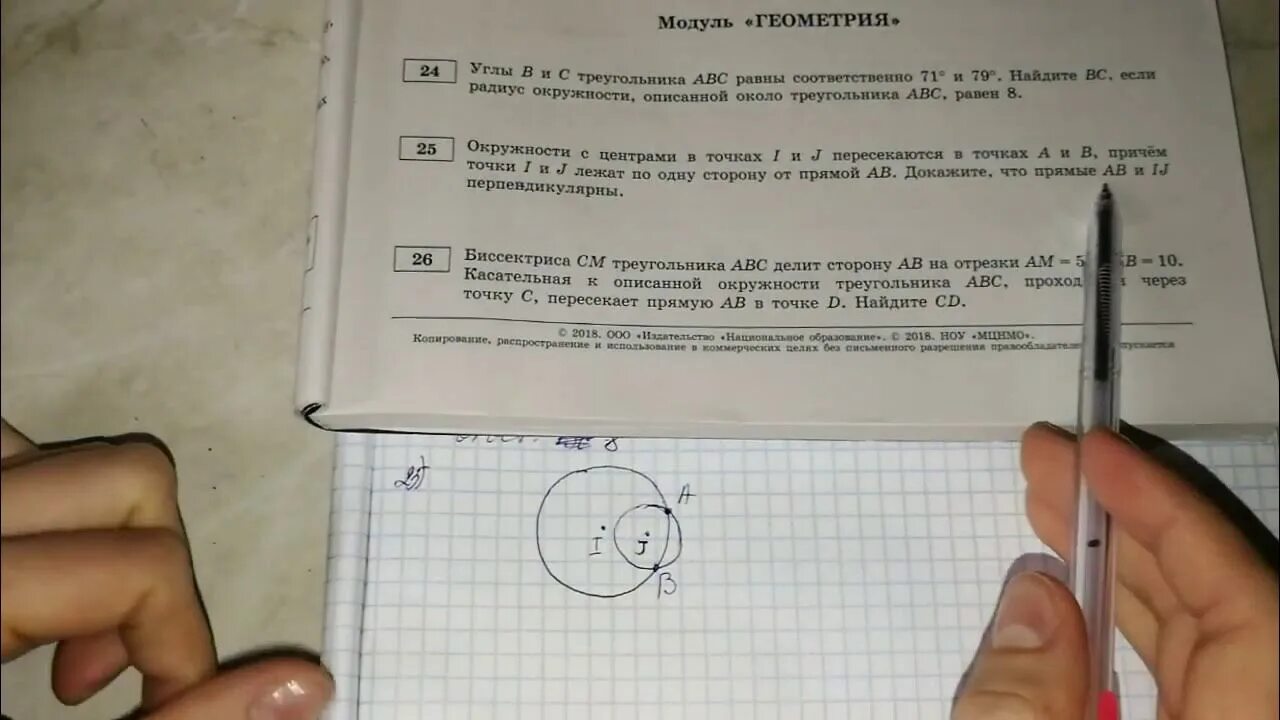 Модуль «ГЕОМЕТРИЯ»
24 Углы B и C треугольника ABC равны соответственно 71° и 79°. Найдите BC, если
радиус окружности, описанной около треугольника ABC, равен 8.
25 Окружности с центрами в точках I и J пересекаются в точках A и B, причём
точки I и J лежат по одну сторону от прямой AB. Докажите, что прямые AB и IJ
перпендикулярны.
26 Биссектриса CM треугольника ABC делит сторону AB на отрезки AM = 5 B = 10.
Касательная к описанной окружности треугольника ABC, проход через
точку C, пересекает прямую AB в точке D. Найдите CD.
© 2018. ООО «Издательство «Национальное образование». © 2018. НОУ «МЦНМО».
Копирование, распространение и использование в коммерческих целях без письменного разрешения правообладате пускается
8
25)
A
I
J
B